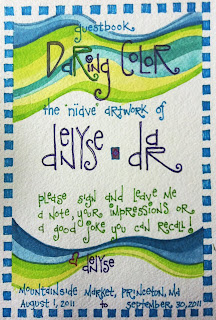 guestbook
DaRing COLOR
the niave' artwork of
please sign and leave me
a note, your impressions or
a good joke you can recall!
Mountainside Market, Princeton, MA
August 1, 2011 to September 30, 2011